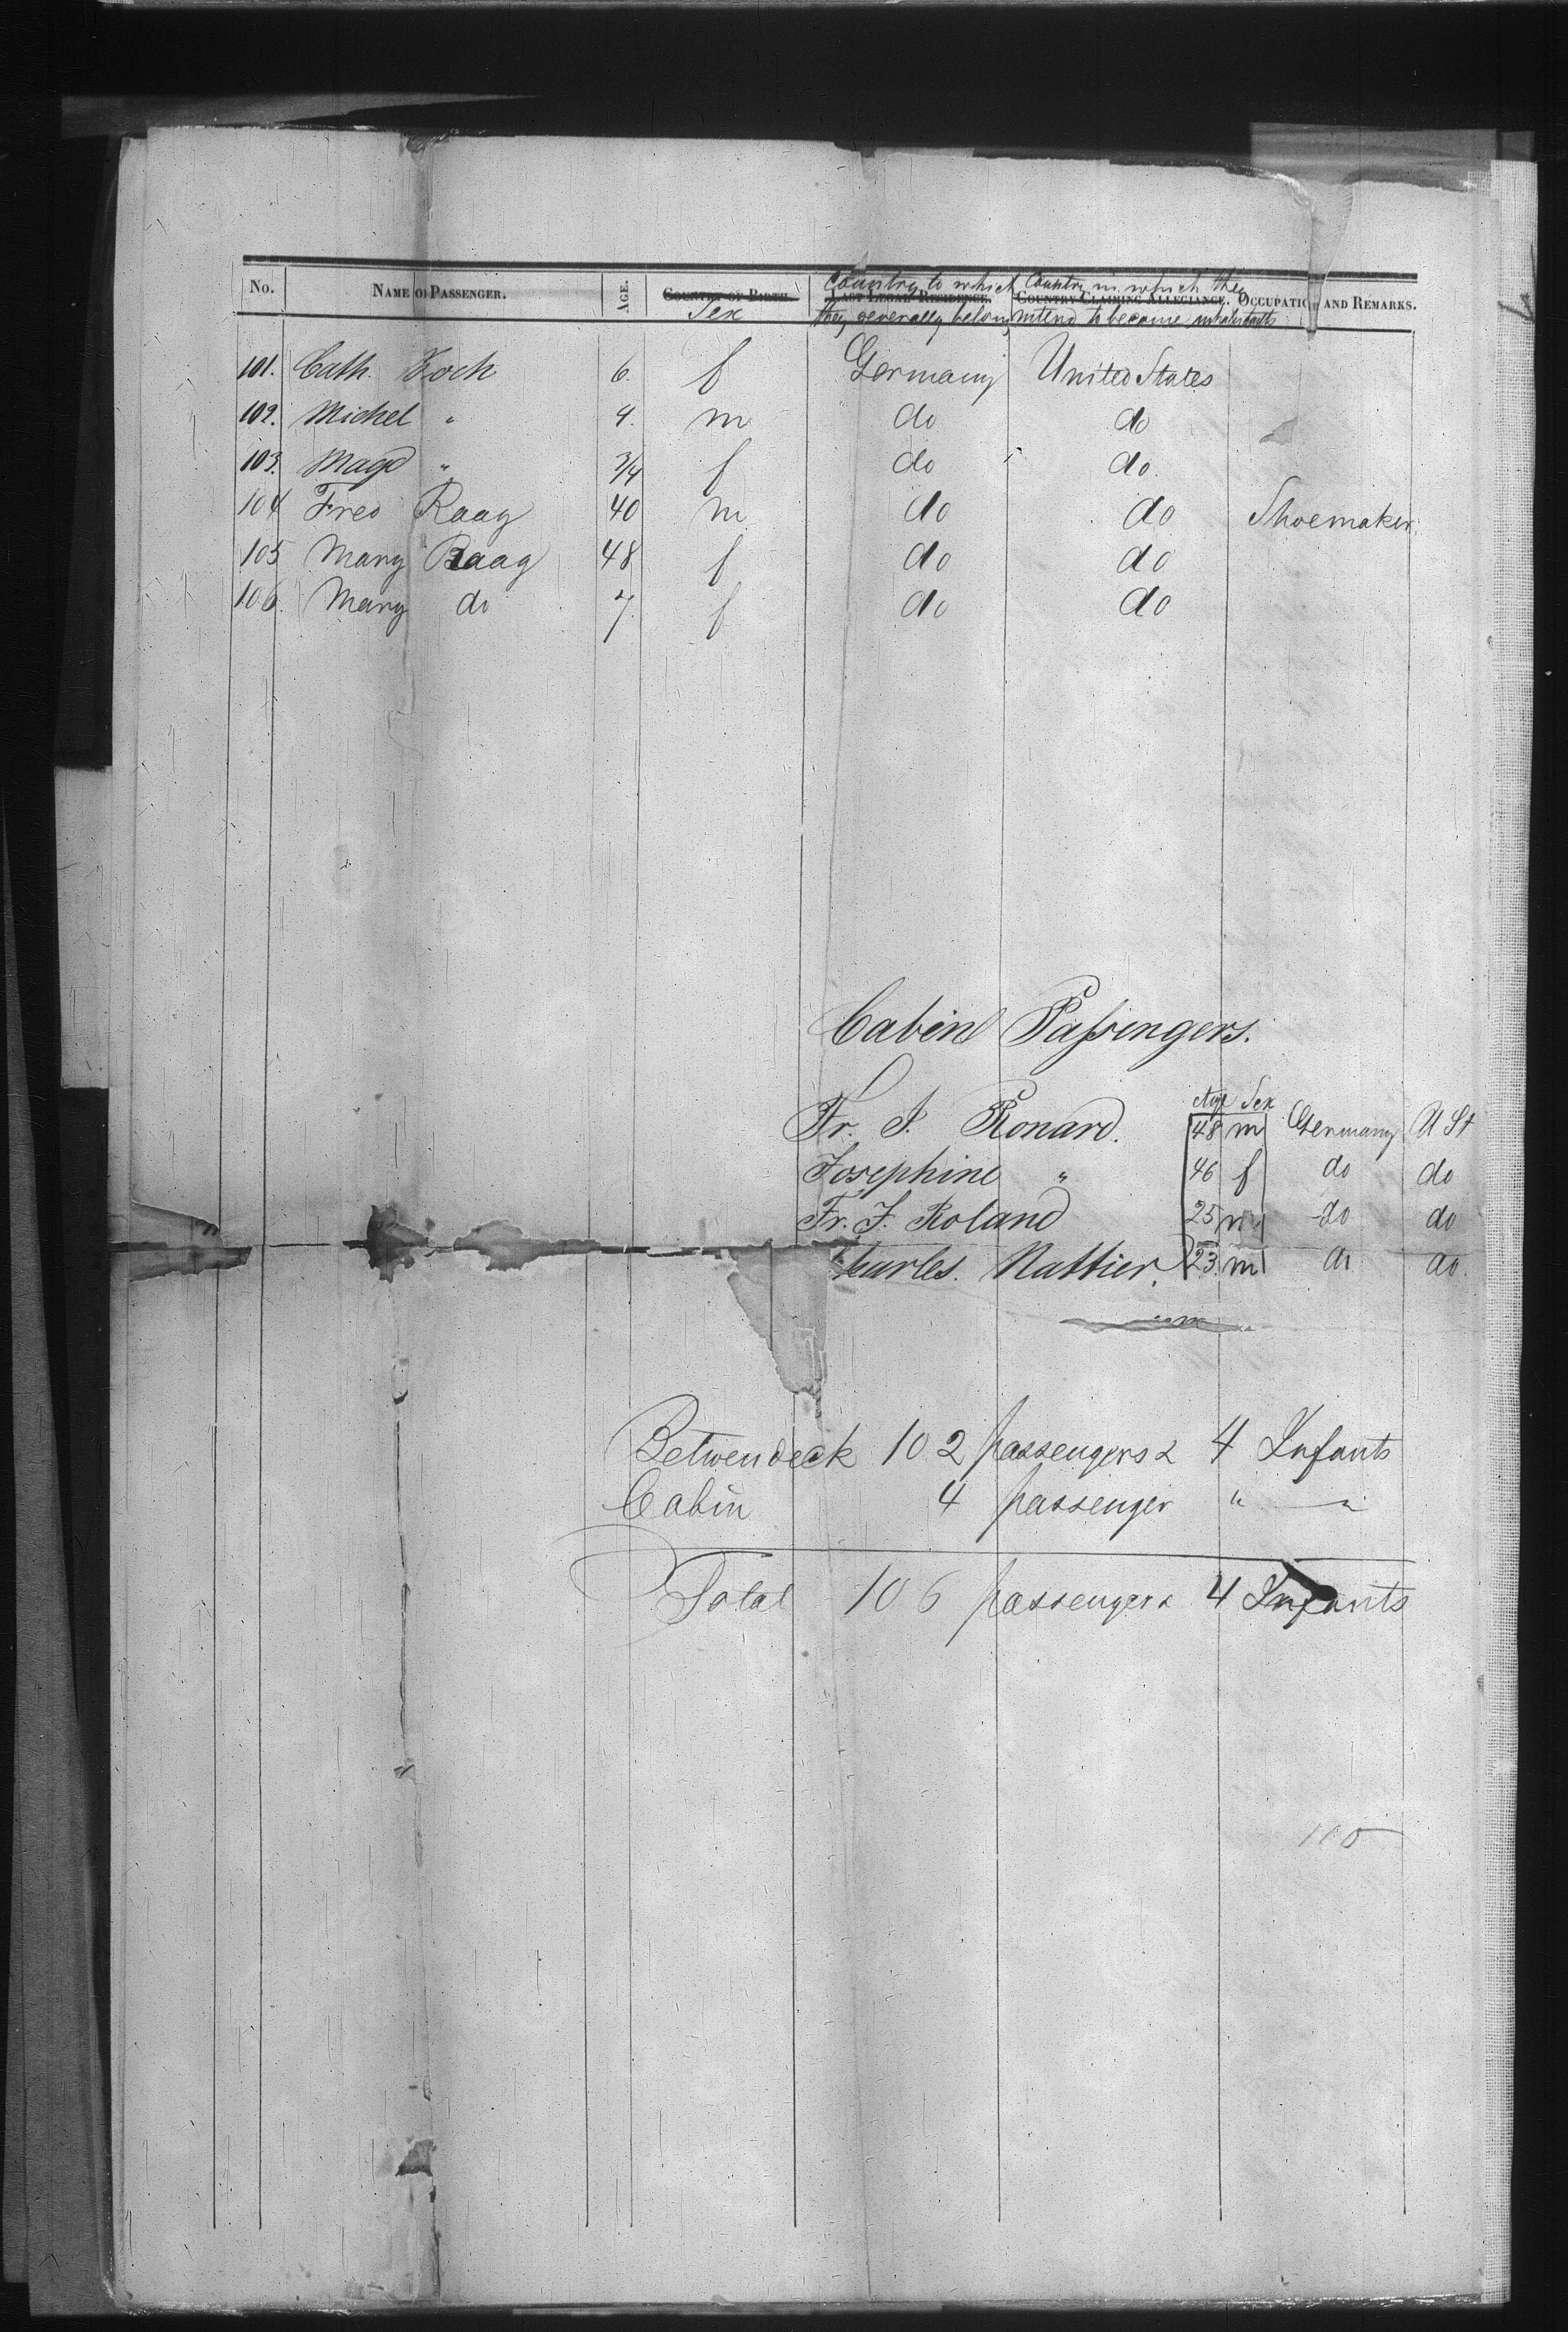 No. NAME OF PASSENGER. AGE. COUNTRY OF BIRTH. LAST LEGAL RESIDENCE. COUNTRY CLAIMING ALLEGIANCE. OCCUPATION AND REMARKS.
Sex Country to which they severally belong Country in which they intend to become inhabitants
101. Cath. Koch 6. f Germany United States
102. Michel " 4. m do do
103. Magd " 3/4 f do do.
104 Fred Raag 40 m do do Shoemaker.
105 Mary Raag 48 f do do
106. Mary do 7. f do do
Cabin Passengers.
Age Sex
Fr. J. Ronard. 48 m Germany U St
Josephine " 46 f do do
Fr. J. Roland 25 m do do
Charles. Nattier. 23. m do do.
Betwendeck 102 passengers & 4 Infants
Cabin 4 passenger " "
Total 106 passengers 4 Infants